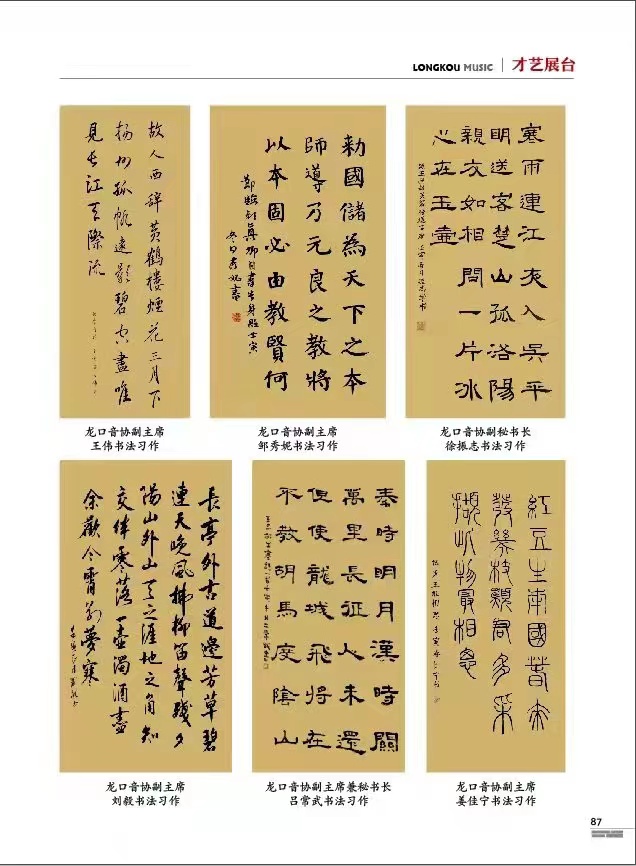 LONGKOU MUSIC | 才艺展台
故人西辞黄鶴樓煙花三月下
揚州孤帆遠影碧空盡唯
見長江天際流
龙口音协副主席
王伟书法习作
勑國儲為天下之本
師導乃元良之教將
以本固必由教賢何
龙口音协副主席
邹秀妮书法习作
寒雨連江夜入吳平
明送客楚山孤洛陽
親友如相問一片冰
心在玉壺
龙口音协副秘书长
徐振志书法习作
長亭外古道邊芳草碧
連天晚風拂柳笛聲殘夕
陽山外山天之涯地之角知
交半零落一壺濁酒盡
余歡今宵別夢寒
龙口音协副主席
刘毅书法习作
秦時明月漢時關
萬里長征人未還
但使龍城飛將在
不教胡馬度陰山
龙口音协副主席兼秘书长
吕常武书法习作
紅豆生南國春來
發幾枝願君多采
擷此物最相思
龙口音协副主席
姜佳宁书法习作
87